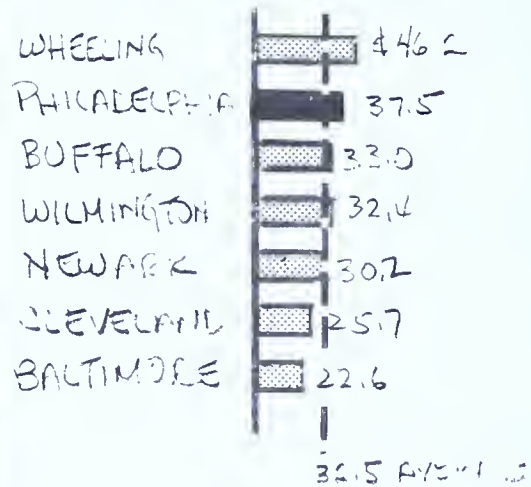 WHEELING $46.2
PHILADELPHIA 37.5
BUFFALO 33.0
WILMINGTON 32.4
NEWARK 30.2
CLEVELAND 25.7
BALTIMORE 22.6